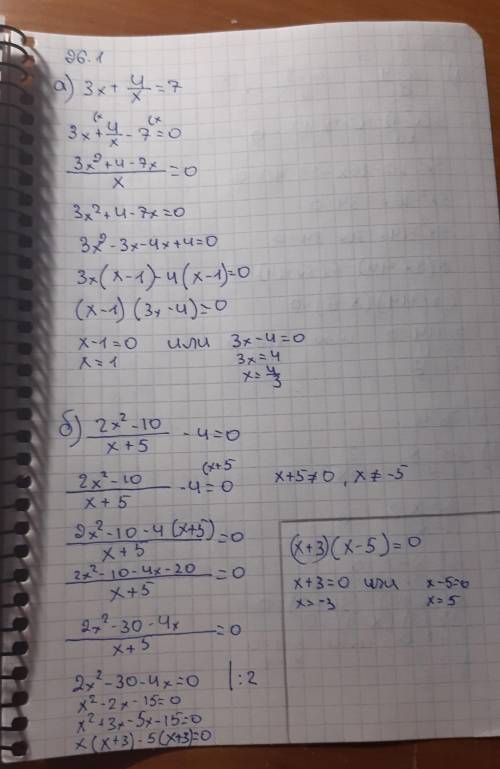 26.1
а) 3x + 4/x = 7
3x + 4/x - 7 = 0 (x (x
(3x² + 4 - 7x)/x = 0
3x² + 4 - 7x = 0
3x² - 3x - 4x + 4 = 0
3x(x - 1) - 4(x - 1) = 0
(x - 1)(3x - 4) = 0
x - 1 = 0 или 3x - 4 = 0
x = 1 3x = 4
x = 4/3
б) (2x² - 10)/(x + 5) - 4 = 0
(2x² - 10)/(x + 5) - 4 = 0 (x+5 x + 5 ≠ 0, x ≠ -5
(2x² - 10 - 4(x + 5))/(x + 5) = 0
(2x² - 10 - 4x - 20)/(x + 5) = 0
(2x² - 30 - 4x)/(x + 5) = 0
2x² - 30 - 4x = 0 |:2
x² - 2x - 15 = 0
x² + 3x - 5x - 15 = 0
x(x + 3) - 5(x + 3) = 0
(x + 3)(x - 5) = 0
x + 3 = 0 или x - 5 = 0
x = -3 x = 5